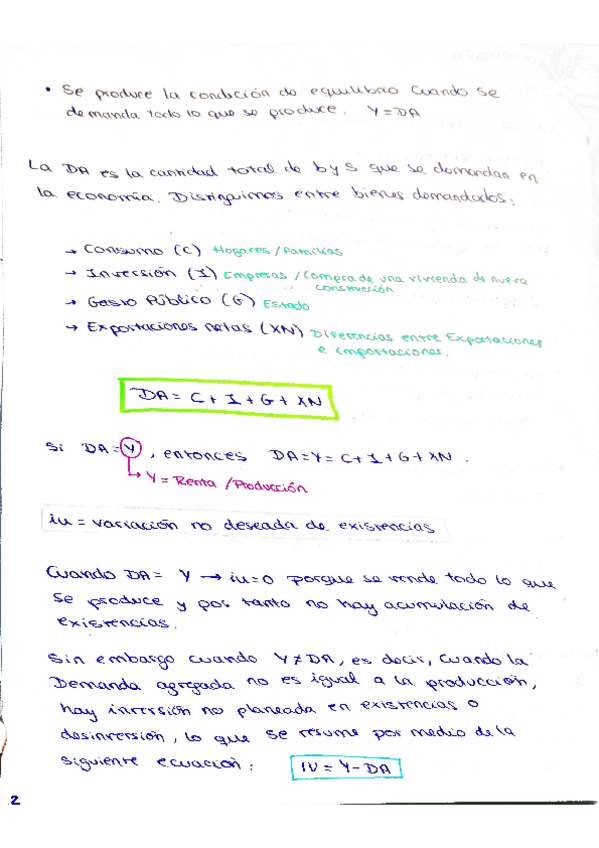 • Se produce la condición de equilibrio cuando se
demanda todo lo que se produce. Y=DA
La DA es la cantidad total de b y s que se demandan en
la economía. Distinguimos entre bienes demandados:
→ Consumo (C) Hogares/familias
→ Inversión (I) Empresas/Compra de una vivienda de nueva
construcción
→ Gasto Público (G) Estado
→ Exportaciones netas (XN) Diferencias entre Exportaciones
e importaciones.
DA = C + I + G + XN
Si DA = Y, entonces DA = Y = C + I + G + XN.
Y = Renta/Producción
iu = variación no deseada de existencias
Cuando DA = Y → iu=0 porque se vende todo lo que
se produce y por tanto no hay acumulación de
existencias.
Sin embargo cuando Y ≠ DA, es decir, cuando la
Demanda agregada no es igual a la producción,
hay inversión no planeada en existencias o
desinversión, lo que se resume por medio de la
siguiente ecuación: IU = Y - DA
2